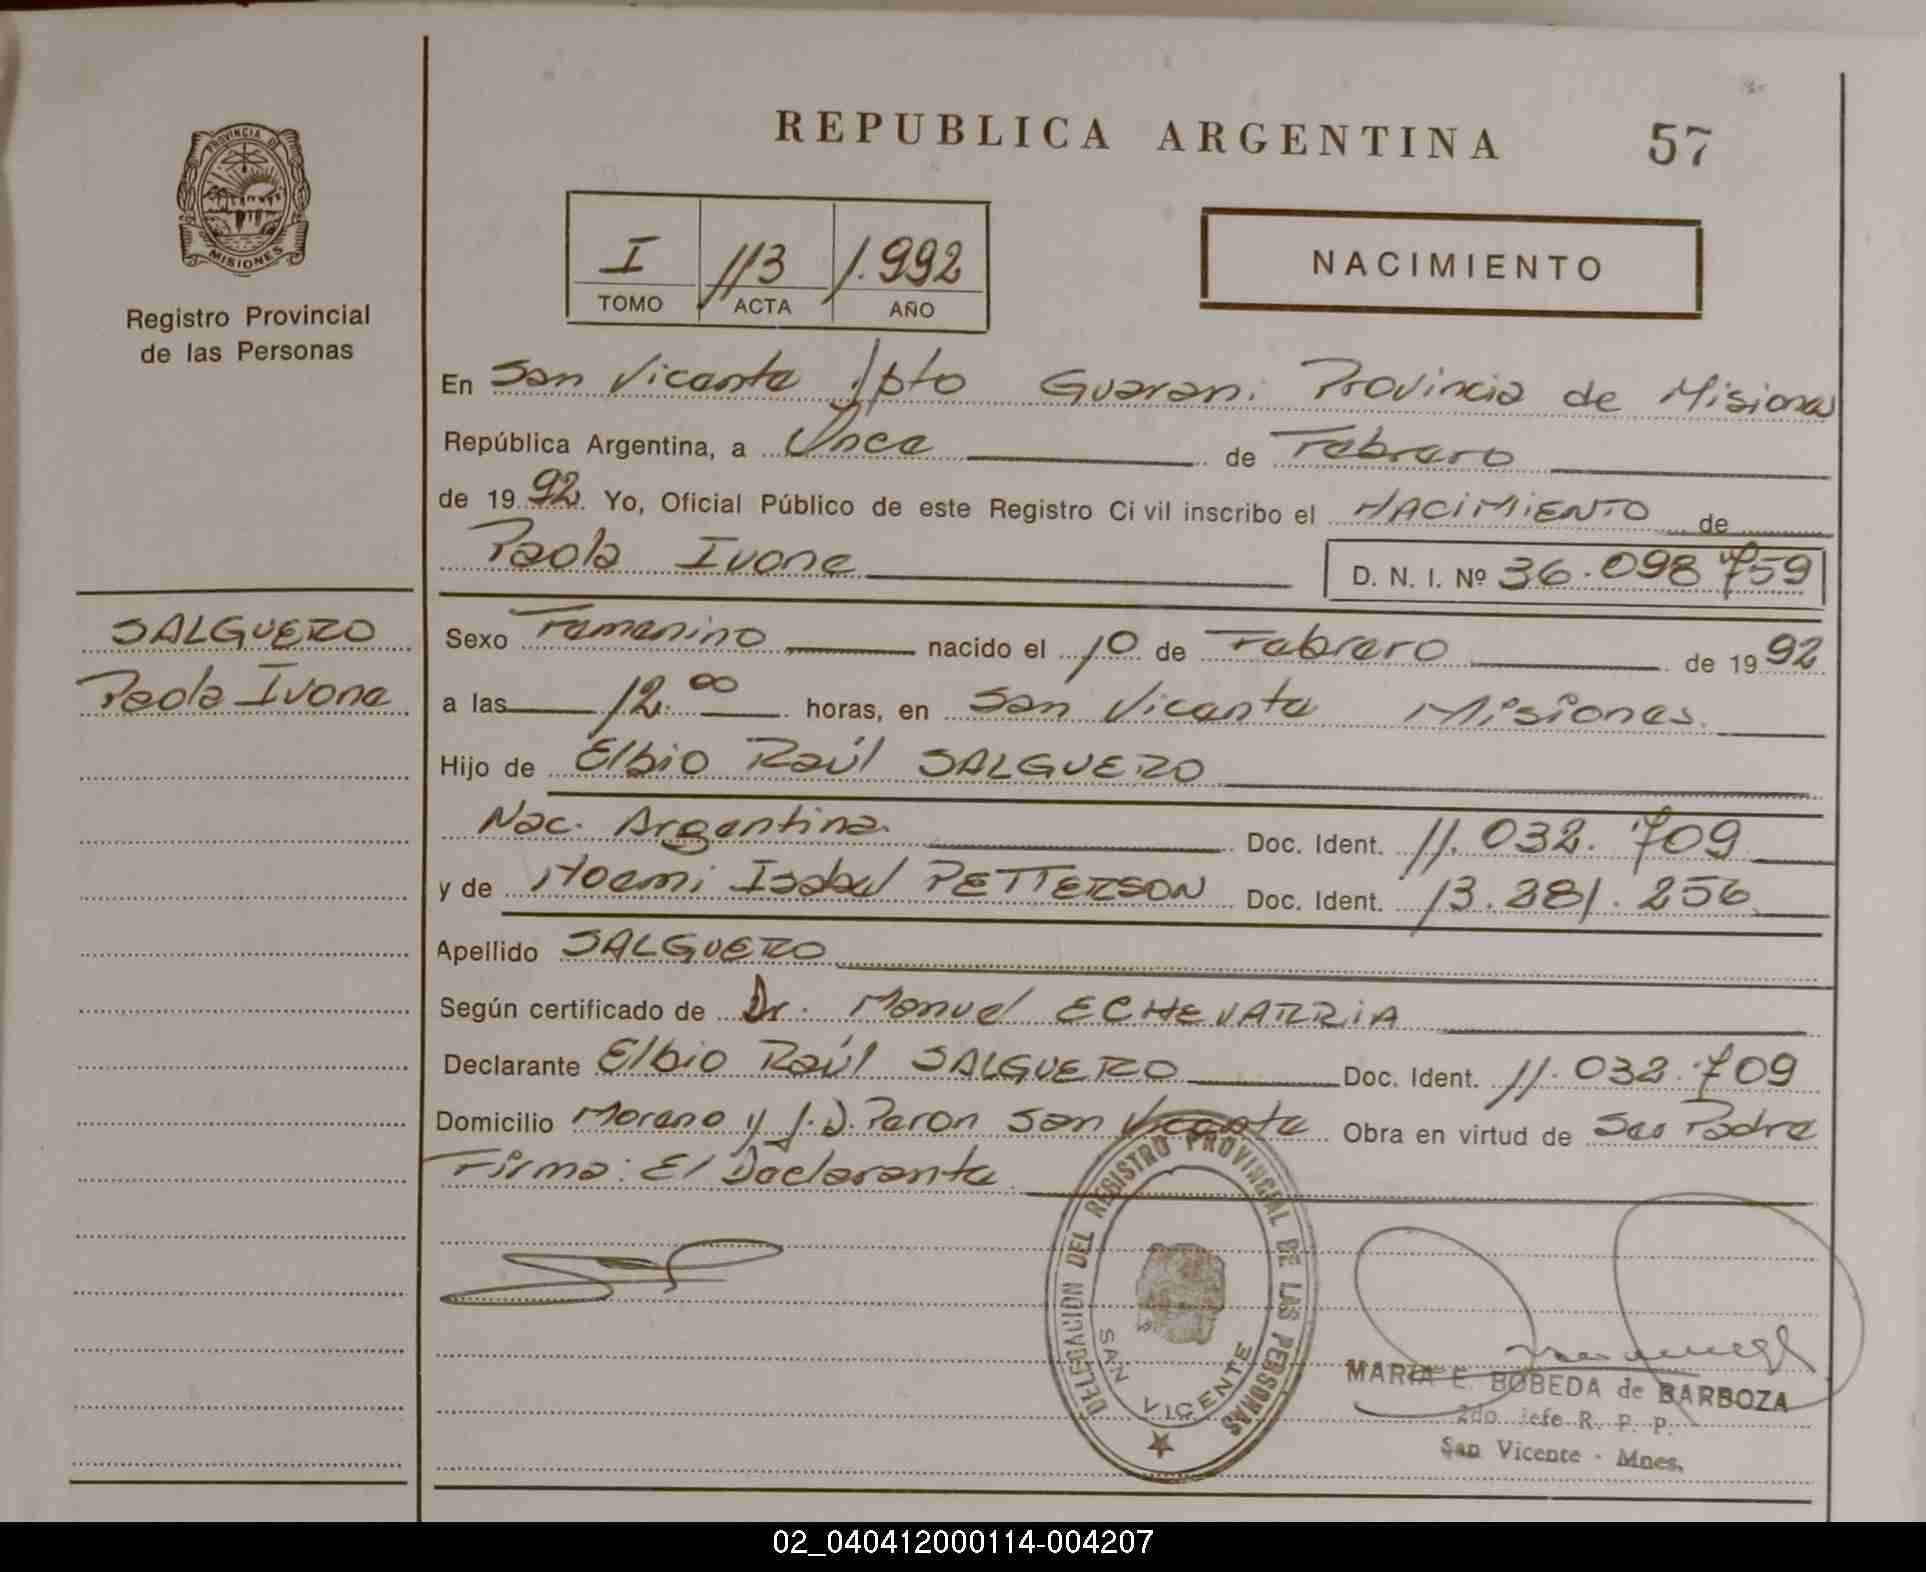 REPUBLICA ARGENTINA
57
PROVINCIA DE
MISIONES
Registro Provincial
de las Personas
I 113 1.992
TOMO ACTA AÑO
NACIMIENTO
En San Vicente Dpto Guarani Provincia de Misiones
República Argentina, a Once de Febrero
de 1992. Yo, Oficial Público de este Registro Civil inscribo el NACIMIENTO de
Paola Ivone D. N. I. Nº 36.098 759
SALGUERO
Paola Ivone
Sexo Femenino nacido el 10 de Febrero de 1992
a las 12.00 horas, en San Vicente Misiones.
Hijo de Elbio Raúl SALGUERO
Nac. Argentina. Doc. Ident. 11.032.709
y de Noemi Isabel PETTERSON Doc. Ident. 13.281.256
Apellido SALGUERO
Según certificado de Dr. Manuel ECHEVARRIA
Declarante Elbio Raúl SALGUERO Doc. Ident. 11.032.709
Domicilio Moreno y J.D. Peron San Vicente Obra en virtud de Ser Padre
Firma: El Declarante
DELEGACION DEL REGISTRO PROVINCIAL DE LAS PERSONAS
SAN VICENTE
MARIA E. BOBEDA de BARBOZA
2do. jefe R. P. P.
San Vicente - Mnes.
02_040412000114-004207